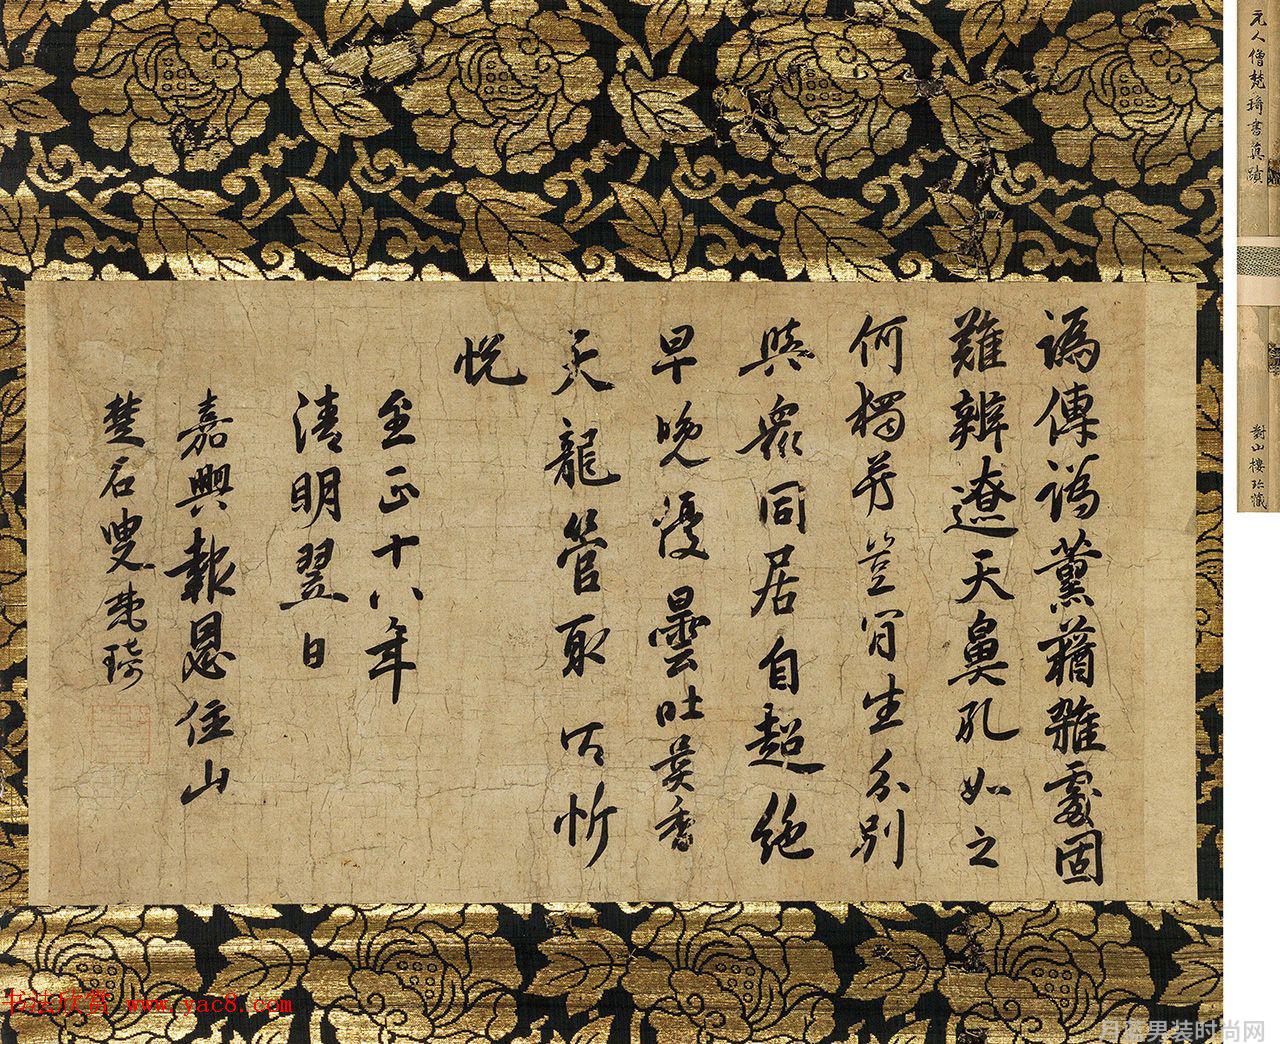 譌傳譌薰蕕雜處固
難辨遼天鼻孔如之
何獨芳豈肯生分別
與眾同居自超絕
早晚優曇吐異香
天龍管取忻
悅
至正十八年
清明翌日
嘉興報恩住山
楚石叟梵琦
元人僧梵琦書真蹟
對山樓珍藏
书法欣赏 www.yac8.com
男装时尚网